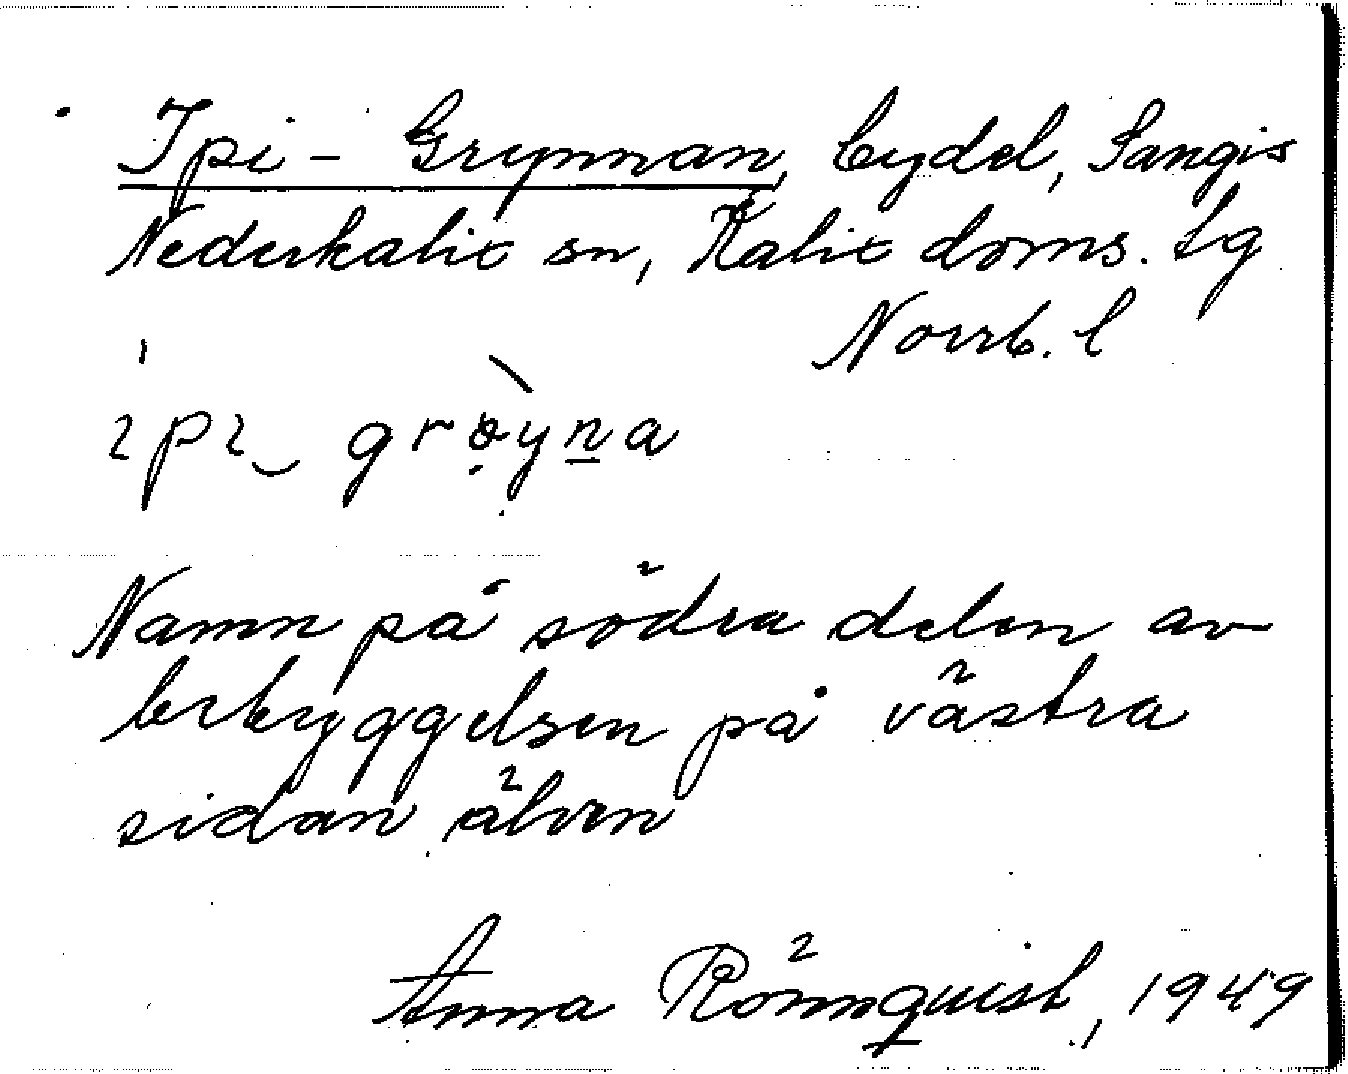 Ipi - Grynnan, bydel, Sangis
Nederkalix sn, Kalix doms. tg
Norrb. l
ıpı‿ grøyna
Namn på södra delen av
bebyggelsen på västra
sidan älven
Anna Rönnquist, 1949